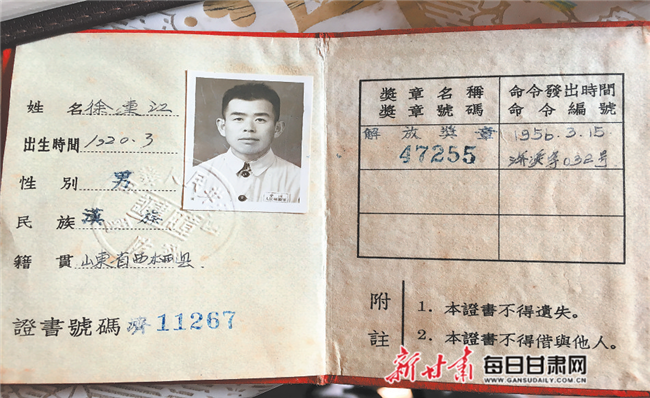 姓名 徐漢江
出生時間 1920.3
性別 男
民族 漢族
籍貫 山東省西 县
證書號碼 濟 11267
獎章名稱
獎章號碼
命令發出時間
命令編號
解放獎章
47255
1956.3.15
濟獎字032号
附註
1. 本證書不得遺失。
2. 本證書不得借與他人。
新甘肃
每日甘肃网
WWW.GANSUDAILY.COM.CN